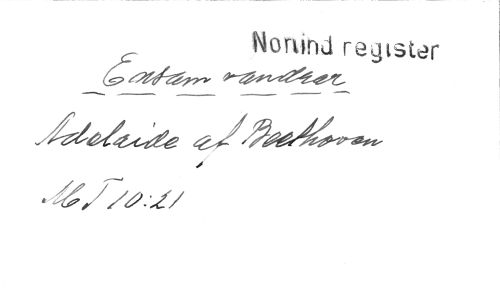 Nonind register
Ensam vandrar
Adelaide af Beethoven
MT 10:21